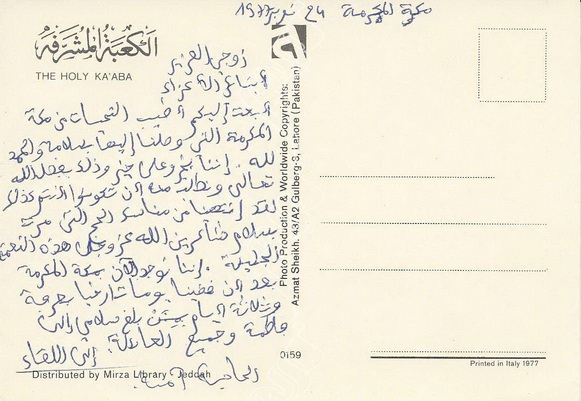 مكة المكرمة 24 نونبر 1977
الكعبة المشرفة
THE HOLY KA'ABA
زوجي العزيز
أبنائي الأعزاء
أبعث إليكم أطيب التحيات من مكة
المكرمة التي وصلنا إليها بسلامة والحمد
لله. إننا بخير وعلى خير وذلك بفضل الله
تعالى ونطلب منه أن تكونوا أنتم كذلك
لقد انتهينا من مناسك الحج التي مرت
بسلام شاكرين الله عز وجل على هذه النعمة
الجليلة. إننا نوجد الآن بمكة المكرمة
بعد أن قضينا يوما بعرفة
وثلاثة أيام بمنى بلغ سلامي إلى
فاطمة وجميع العائلة. إلى اللقاء
الحاجة
Photo Production & Worldwide Copyrights:
Azmat Sheikh. 43/A2 Gulberg-3, Lahore (Pakistan)
0159
Distributed by Mirza Library - Jeddah
Printed in Italy 1977